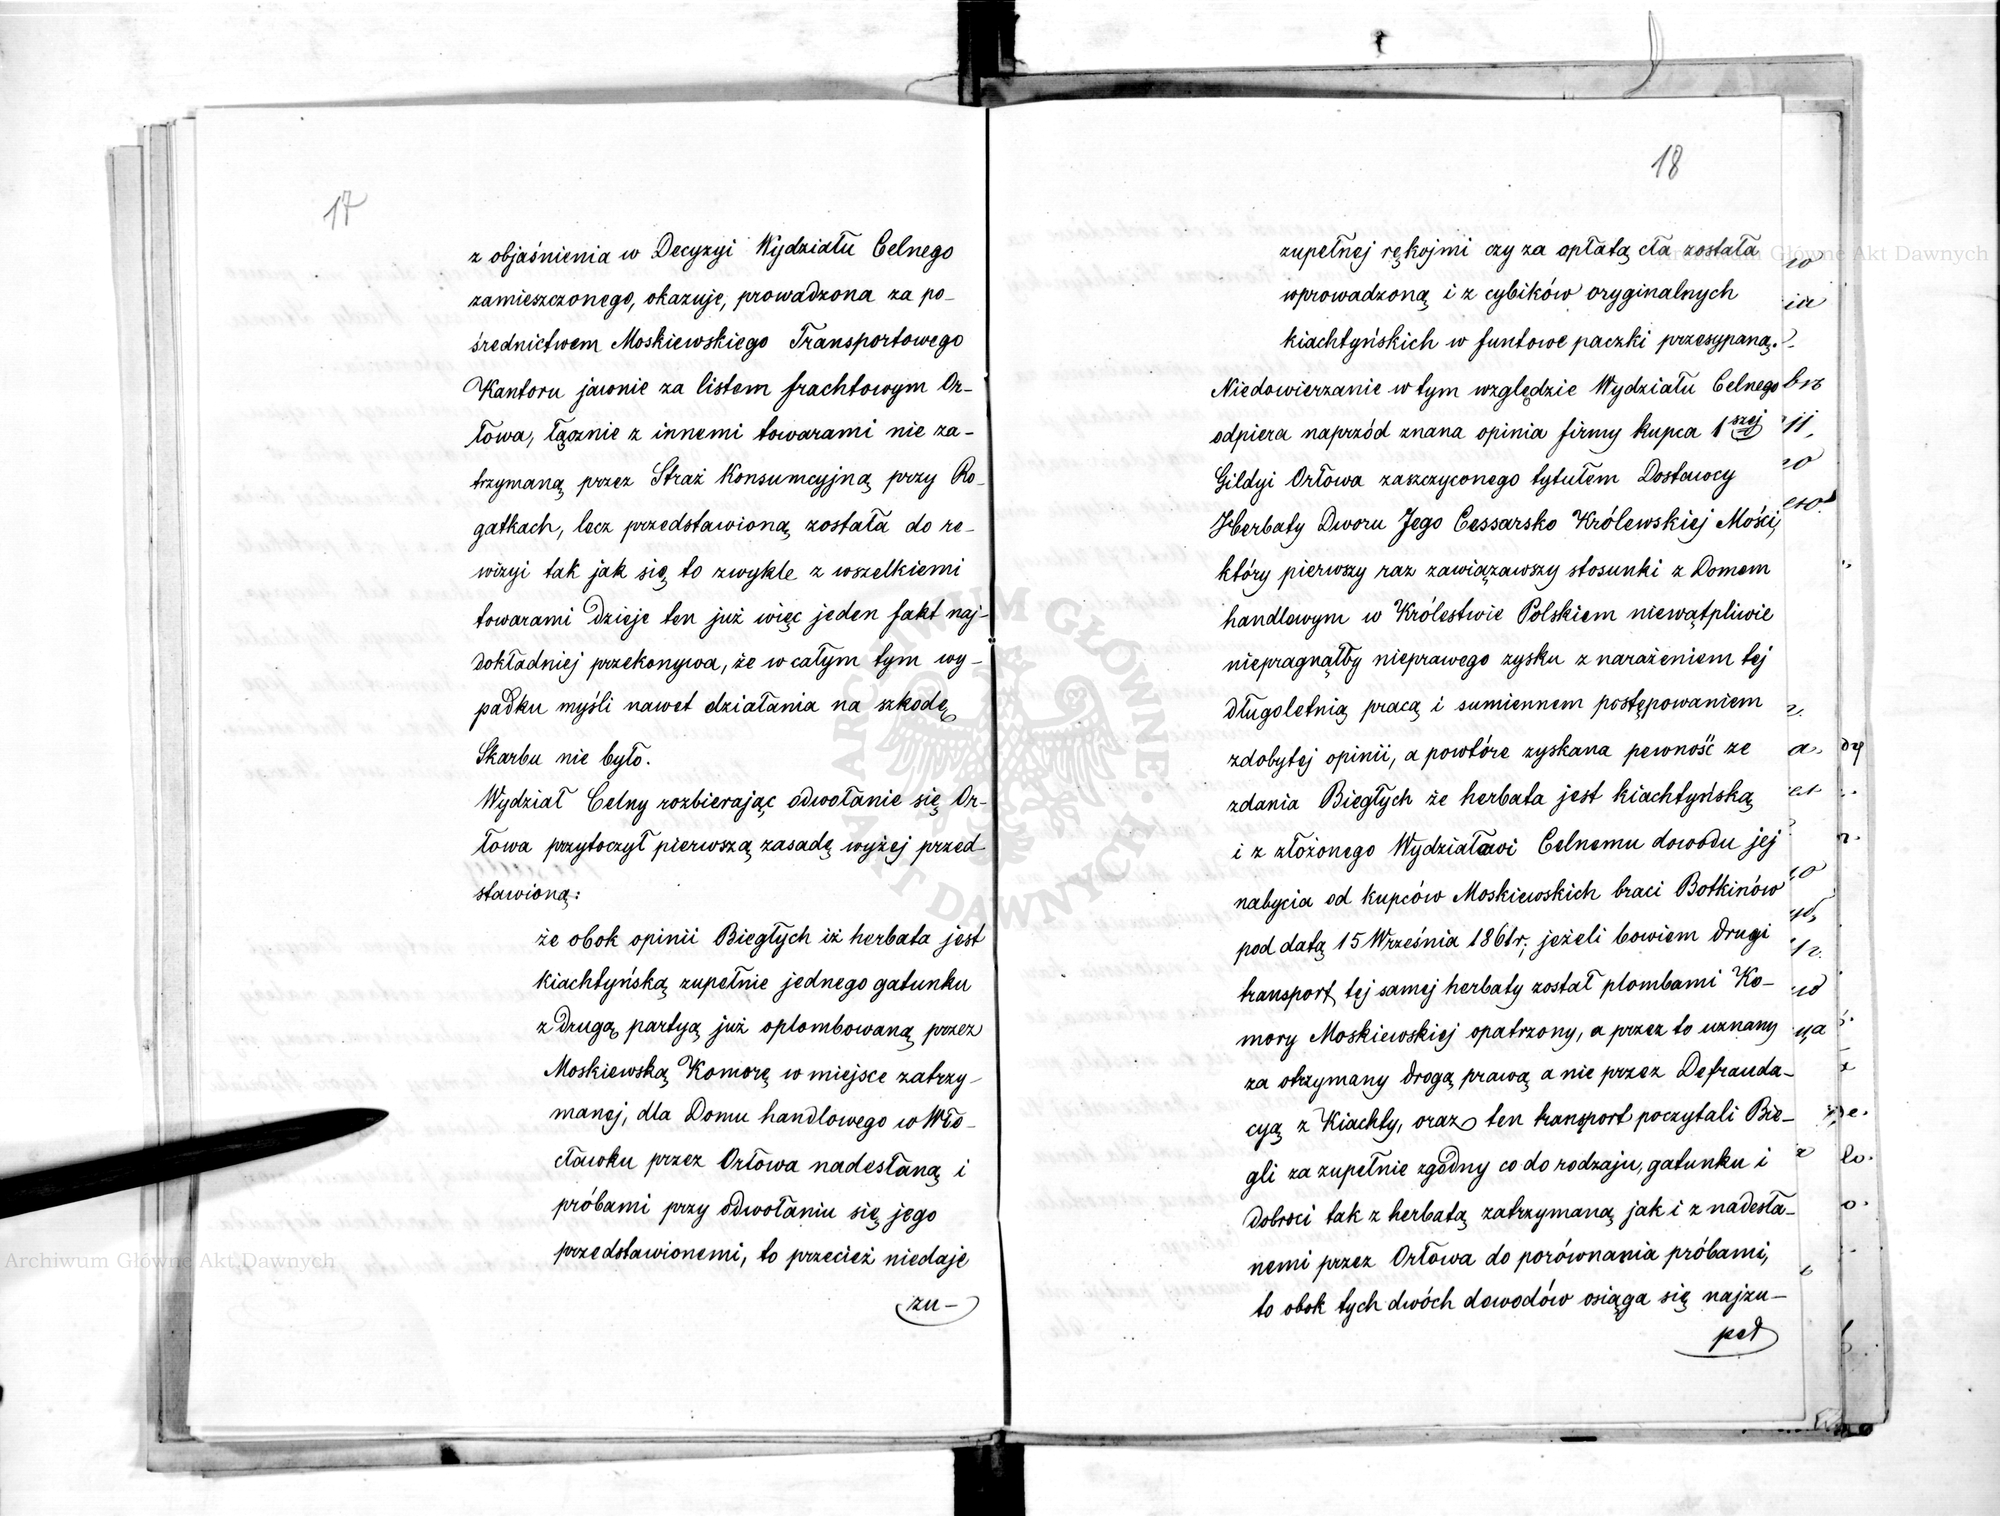 17
z objaśnienia w Decyzyi Wydziału Celnego
zamieszczonego, okazuje, prowadzona za po-
średnictwem Moskiewskiego Transportowego
Kantoru jawnie za listem frachtowym Or-
łowa, łącznie z innemi towarami nie za-
trzymaną przez Straż Konsumcyjną przy Ro-
gatkach, lecz przedstawioną została do re-
wizyi tak jak się to zwykle z wszelkiemi
towarami dzieje ten już więc jeden fakt naj-
dokładniej przekonywa, że w całym tym wy-
padku myśli nawet działania na szkodę
Skarbu nie było.
Wydział Celny rozbierając odwołanie się Or-
łowa przytoczył pierwszą zasadę wyżej przed
stawioną:
że obok opinii Biegłych iż herbata jest
kiachtyńską zupełnie jednego gatunku
z drugą partyą już oplombowaną przez
Moskiewską Komorę w miejsce zatrzy-
manej, dla Domu handlowego w Wło-
cławku przez Orłowa nadesłaną i
próbami przy odwołaniu się jego
przedstawionemi, to przecież niedaje
zu-
18
zupełnej rękojmi czy za opłatą cła została
wprowadzoną i z cybików oryginalnych
kiachtyńskich w funtowe paczki przesypaną.
Niedowierzanie w tym względzie Wydziału Celnego
odpiera naprzód znana opinia firmy kupca 1szej
Gildyi Orłowa zaszczyconego tytułem Dostawcy
Herbaty Dworu Jego Cessarsko Królewskiej Mości,
który pierwszy raz zawiązawszy stosunki z Domem
handlowym w Królestwie Polskiem niewątpliwie
niepragnąłby nieprawego zysku z narażeniem tej
długoletnią pracą i sumiennem postępowaniem
zdobytej opinii, a powtóre zyskana pewność ze
zdania Biegłych że herbata jest kiachtyńską
i z złożonego Wydziałowi Celnemu dowodu jej
nabycia od kupców Moskiewskich braci Botkinów
pod datą 15 Września 1861 r; jeżeli bowiem drugi
transport tej samej herbaty został plombami Ko-
mory Moskiewskiej opatrzony, a przez to uznany
za otrzymany drogą prawą a nie przez Defrauda-
cyą z Kiachty, oraz ten transport poczytali Bie-
gli za zupełnie zgodny co do rodzaju, gatunku i
dobroci tak z herbatą zatrzymaną jak i z nadesła-
nemi przez Orłowa do porównania próbami,
to obok tych dwóch dowodów osiąga się najzu-
peł
Archiwum Główne Akt Dawnych
Archiwum Główne Akt Dawnych
ARCHIWUM GŁÓWNE AKT DAWNYCH